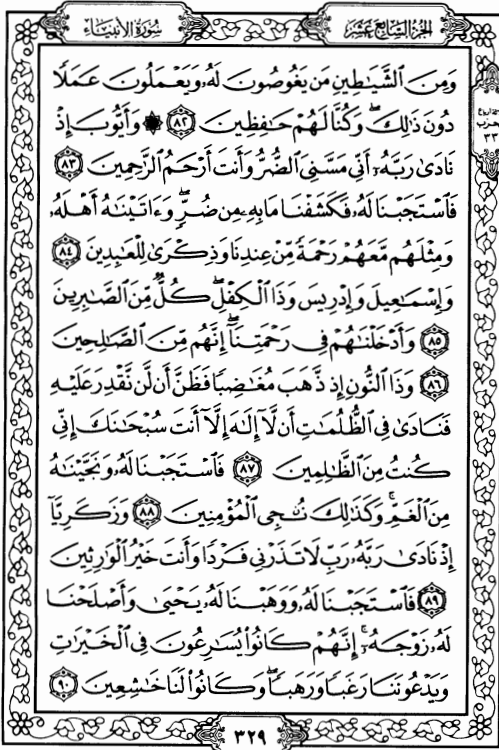 الجزء السابع عشر
سورة الأنبياء
وَمِنَ ٱلشَّيَٰطِينِ مَن يَغُوصُونَ لَهُۥ وَيَعْمَلُونَ عَمَلًا
دُونَ ذَٰلِكَ ۖ وَكُنَّا لَهُمْ حَٰفِظِينَ ٨٢ ۞ وَأَيُّوبَ إِذْ
نَادَىٰ رَبَّهُۥٓ أَنِّي مَسَّنِيَ ٱلضُّرُّ وَأَنتَ أَرْحَمُ ٱلرَّٰحِمِينَ ٨٣
فَٱسْتَجَبْنَا لَهُۥ فَكَشَفْنَا مَا بِهِۦ مِن ضُرٍّ ۖ وَءَاتَيْنَٰهُ أَهْلَهُۥ
وَمِثْلَهُم مَّعَهُمْ رَحْمَةً مِّنْ عِندِنَا وَذِكْرَىٰ لِلْعَٰبِدِينَ ٨٤
وَإِسْمَٰعِيلَ وَإِدْرِيسَ وَذَا ٱلْكِفْلِ ۖ كُلٌّ مِّنَ ٱلصَّٰبِرِينَ
٨٥ وَأَدْخَلْنَٰهُمْ فِي رَحْمَتِنَآ ۖ إِنَّهُم مِّنَ ٱلصَّٰلِحِينَ
٨٦ وَذَا ٱلنُّونِ إِذ ذَّهَبَ مُغَٰضِبًا فَظَنَّ أَن لَّن نَّقْدِرَ عَلَيْهِ
فَنَادَىٰ فِي ٱلظُّلُمَٰتِ أَن لَّآ إِلَٰهَ إِلَّآ أَنتَ سُبْحَٰنَكَ إِنِّي
كُنتُ مِنَ ٱلظَّٰلِمِينَ ٨٧ فَٱسْتَجَبْنَا لَهُۥ وَنَجَّيْنَٰهُ
مِنَ ٱلْغَمِّ ۚ وَكَذَٰلِكَ نُۨجِي ٱلْمُؤْمِنِينَ ٨٨ وَزَكَرِيَّآ
إِذْ نَادَىٰ رَبَّهُۥ رَبِّ لَا تَذَرْنِي فَرْدًا وَأَنتَ خَيْرُ ٱلْوَٰرِثِينَ
٨٩ فَٱسْتَجَبْنَا لَهُۥ وَوَهَبْنَا لَهُۥ يَحْيَىٰ وَأَصْلَحْنَا
لَهُۥ زَوْجَهُۥٓ ۚ إِنَّهُمْ كَانُوا۟ يُسَٰرِعُونَ فِي ٱلْخَيْرَٰتِ
وَيَدْعُونَنَا رَغَبًا وَرَهَبًا ۖ وَكَانُوا۟ لَنَا خَٰشِعِينَ ٩٠
٣٢٩